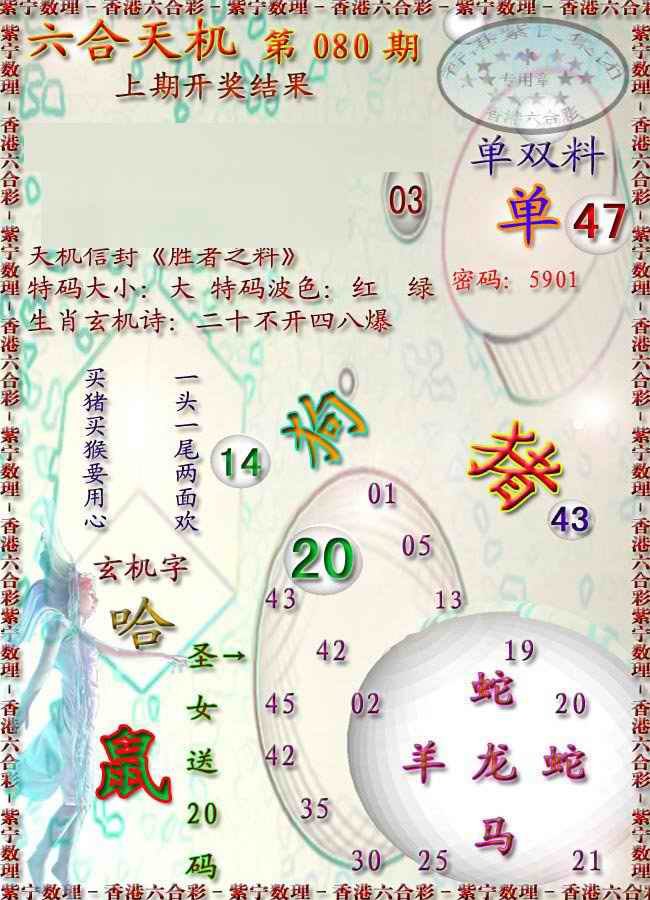 紫宁数理－香港六合彩－紫宁数理－香港六合彩－紫宁数理－香港六合彩－紫宁数理
六合天机 第 080 期
上期开奖结果
香港紫宁集团
专用章
香港六合彩
单双料
03
单 47
天机信封《胜者之料》
特码大小：大 特码波色：红 绿
密码：5901
生肖玄机诗：二十不开四八爆
一头一尾两面欢
买猪买猴要用心
14
狗
猪
43
01
05
20
43
13
玄机字
哈
圣→
女
送
20
码
鼠
42
19
蛇
45
02
20
42
羊 龙 蛇
35
马
30
25
21
紫宁数理－香港六合彩－紫宁数理－香港六合彩－紫宁数理－香港六合彩－紫宁数理